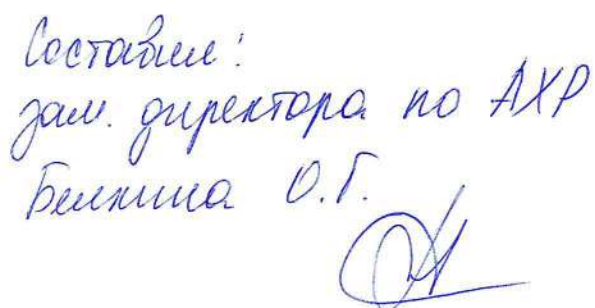 Составил:
зам. директора по АХР
Белкина О.Г.